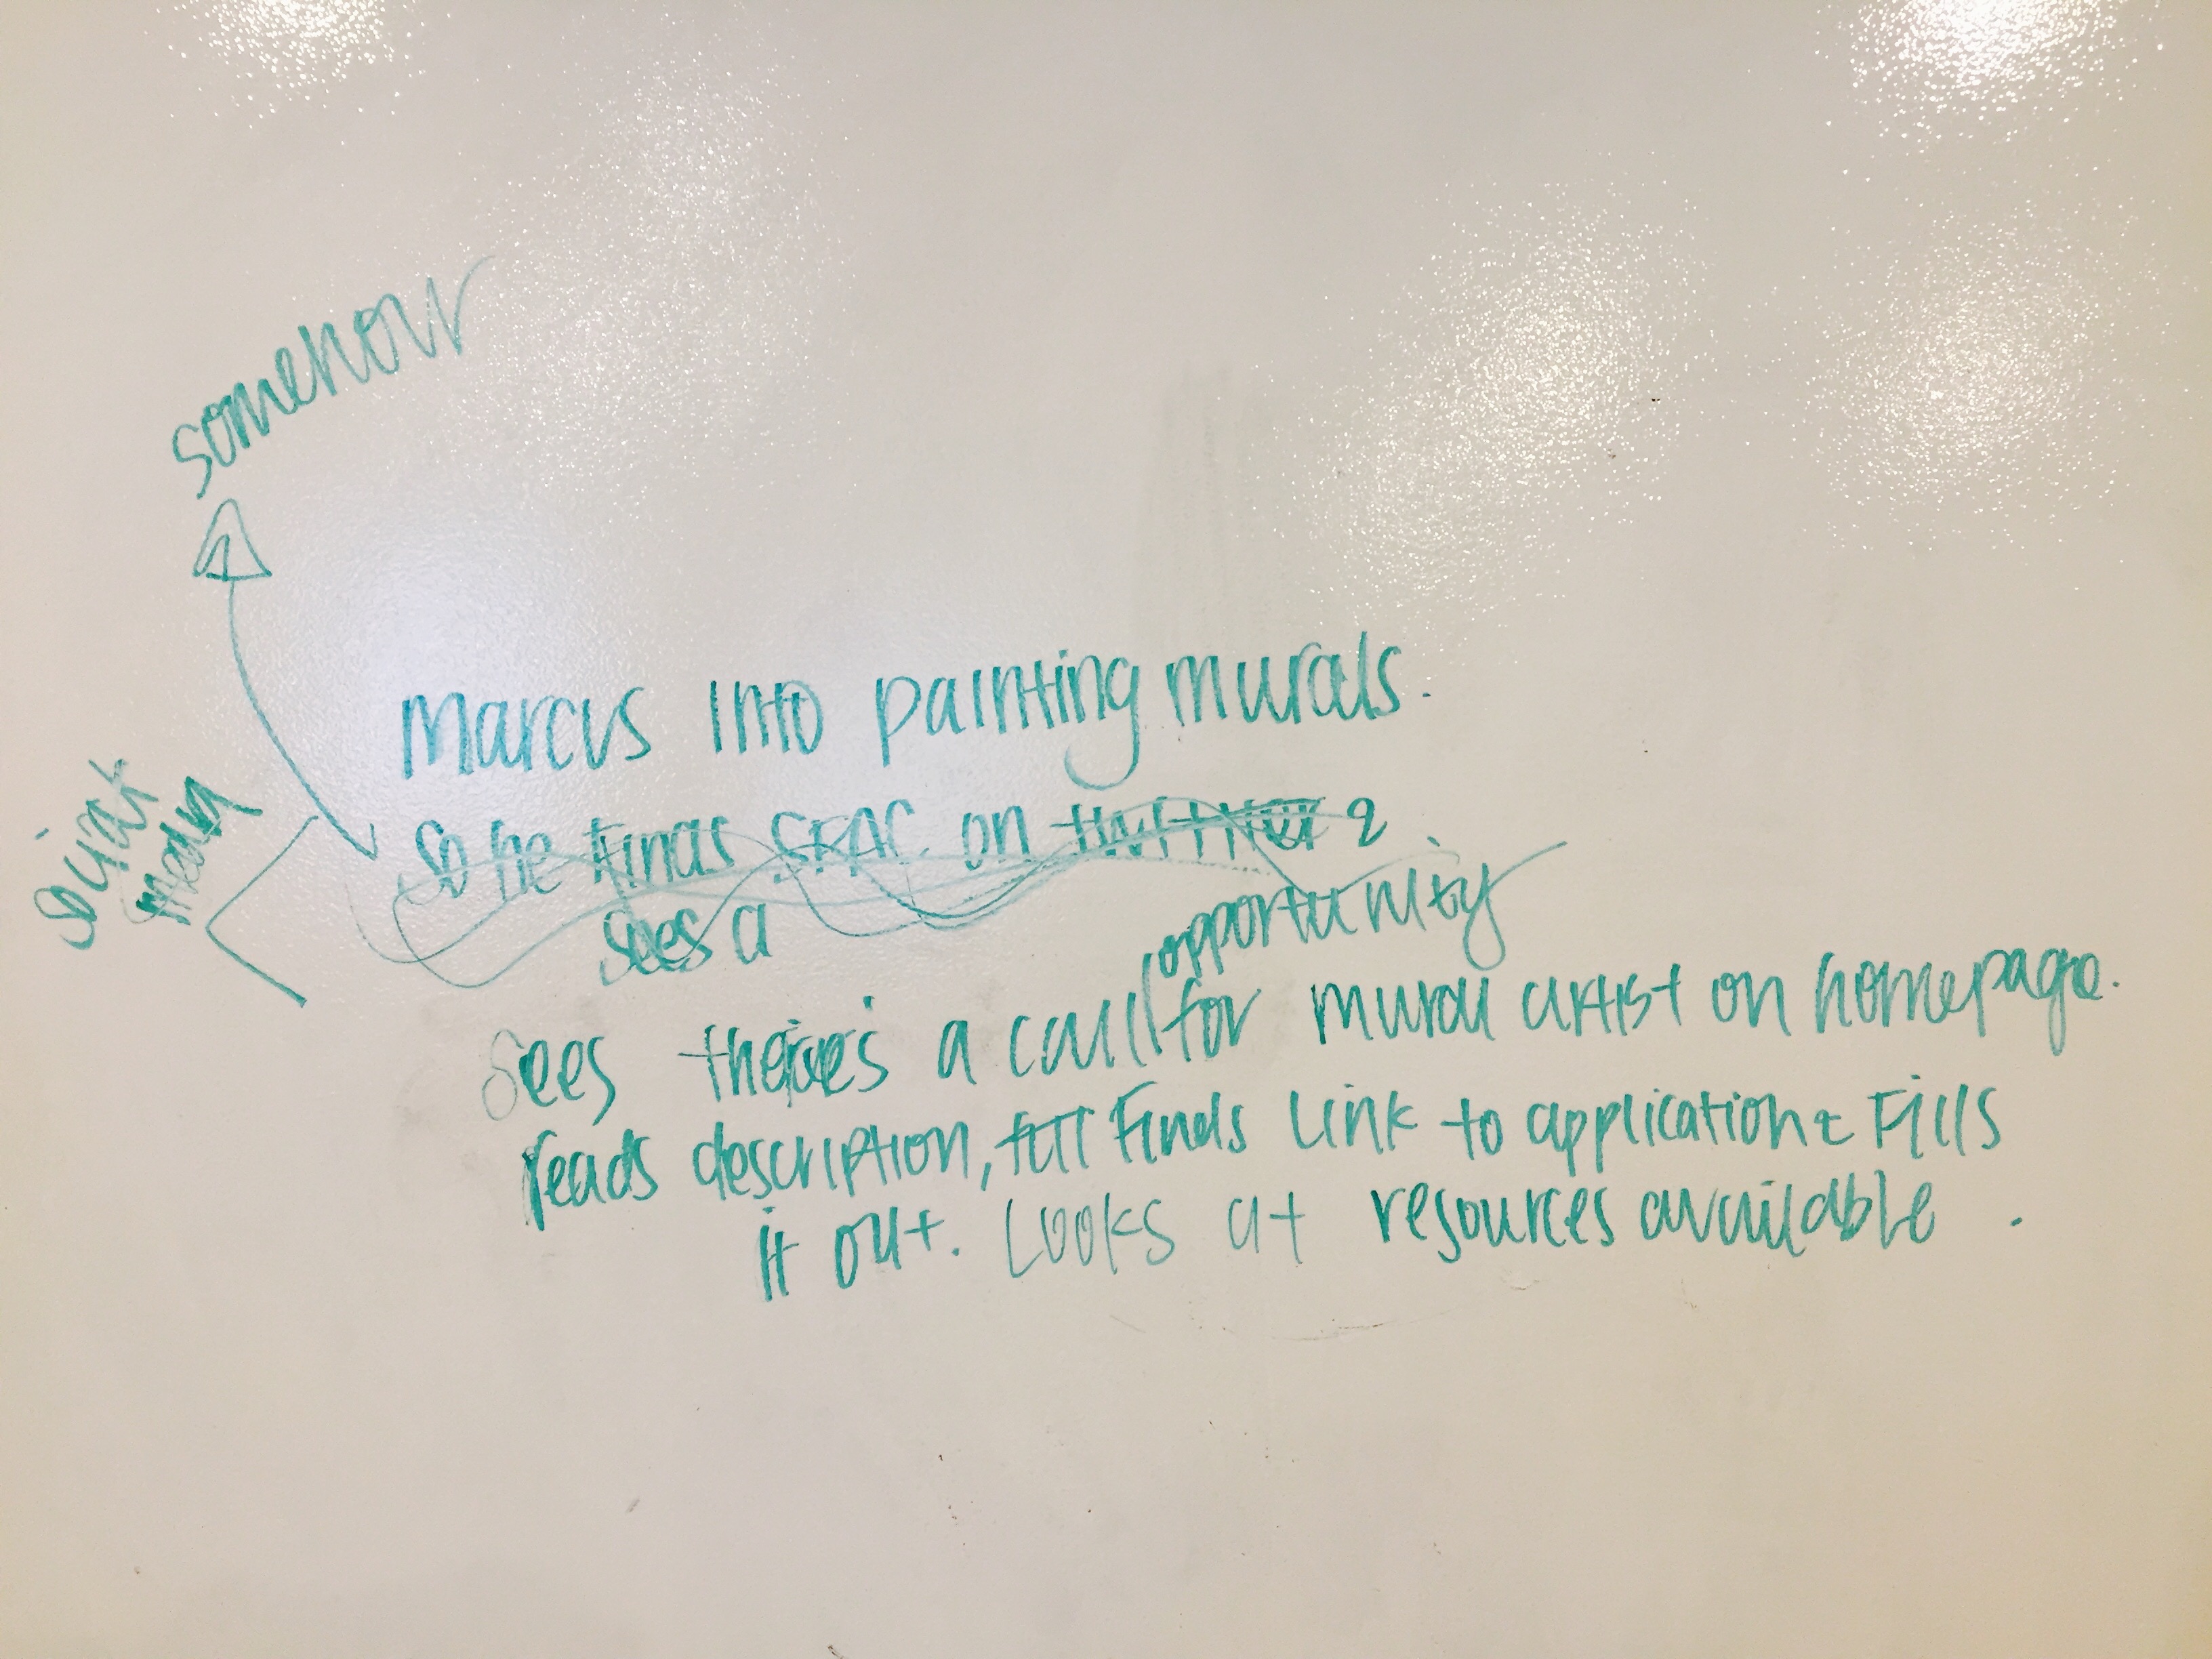 somehow
Marcus into painting murals.
social
media
So he finds SFAC on twitter &
sees a
opportunity
Sees there's a call for mural artist on homepage.
reads description, fill Finds Link to application & Fills
it out. Looks at resources available.